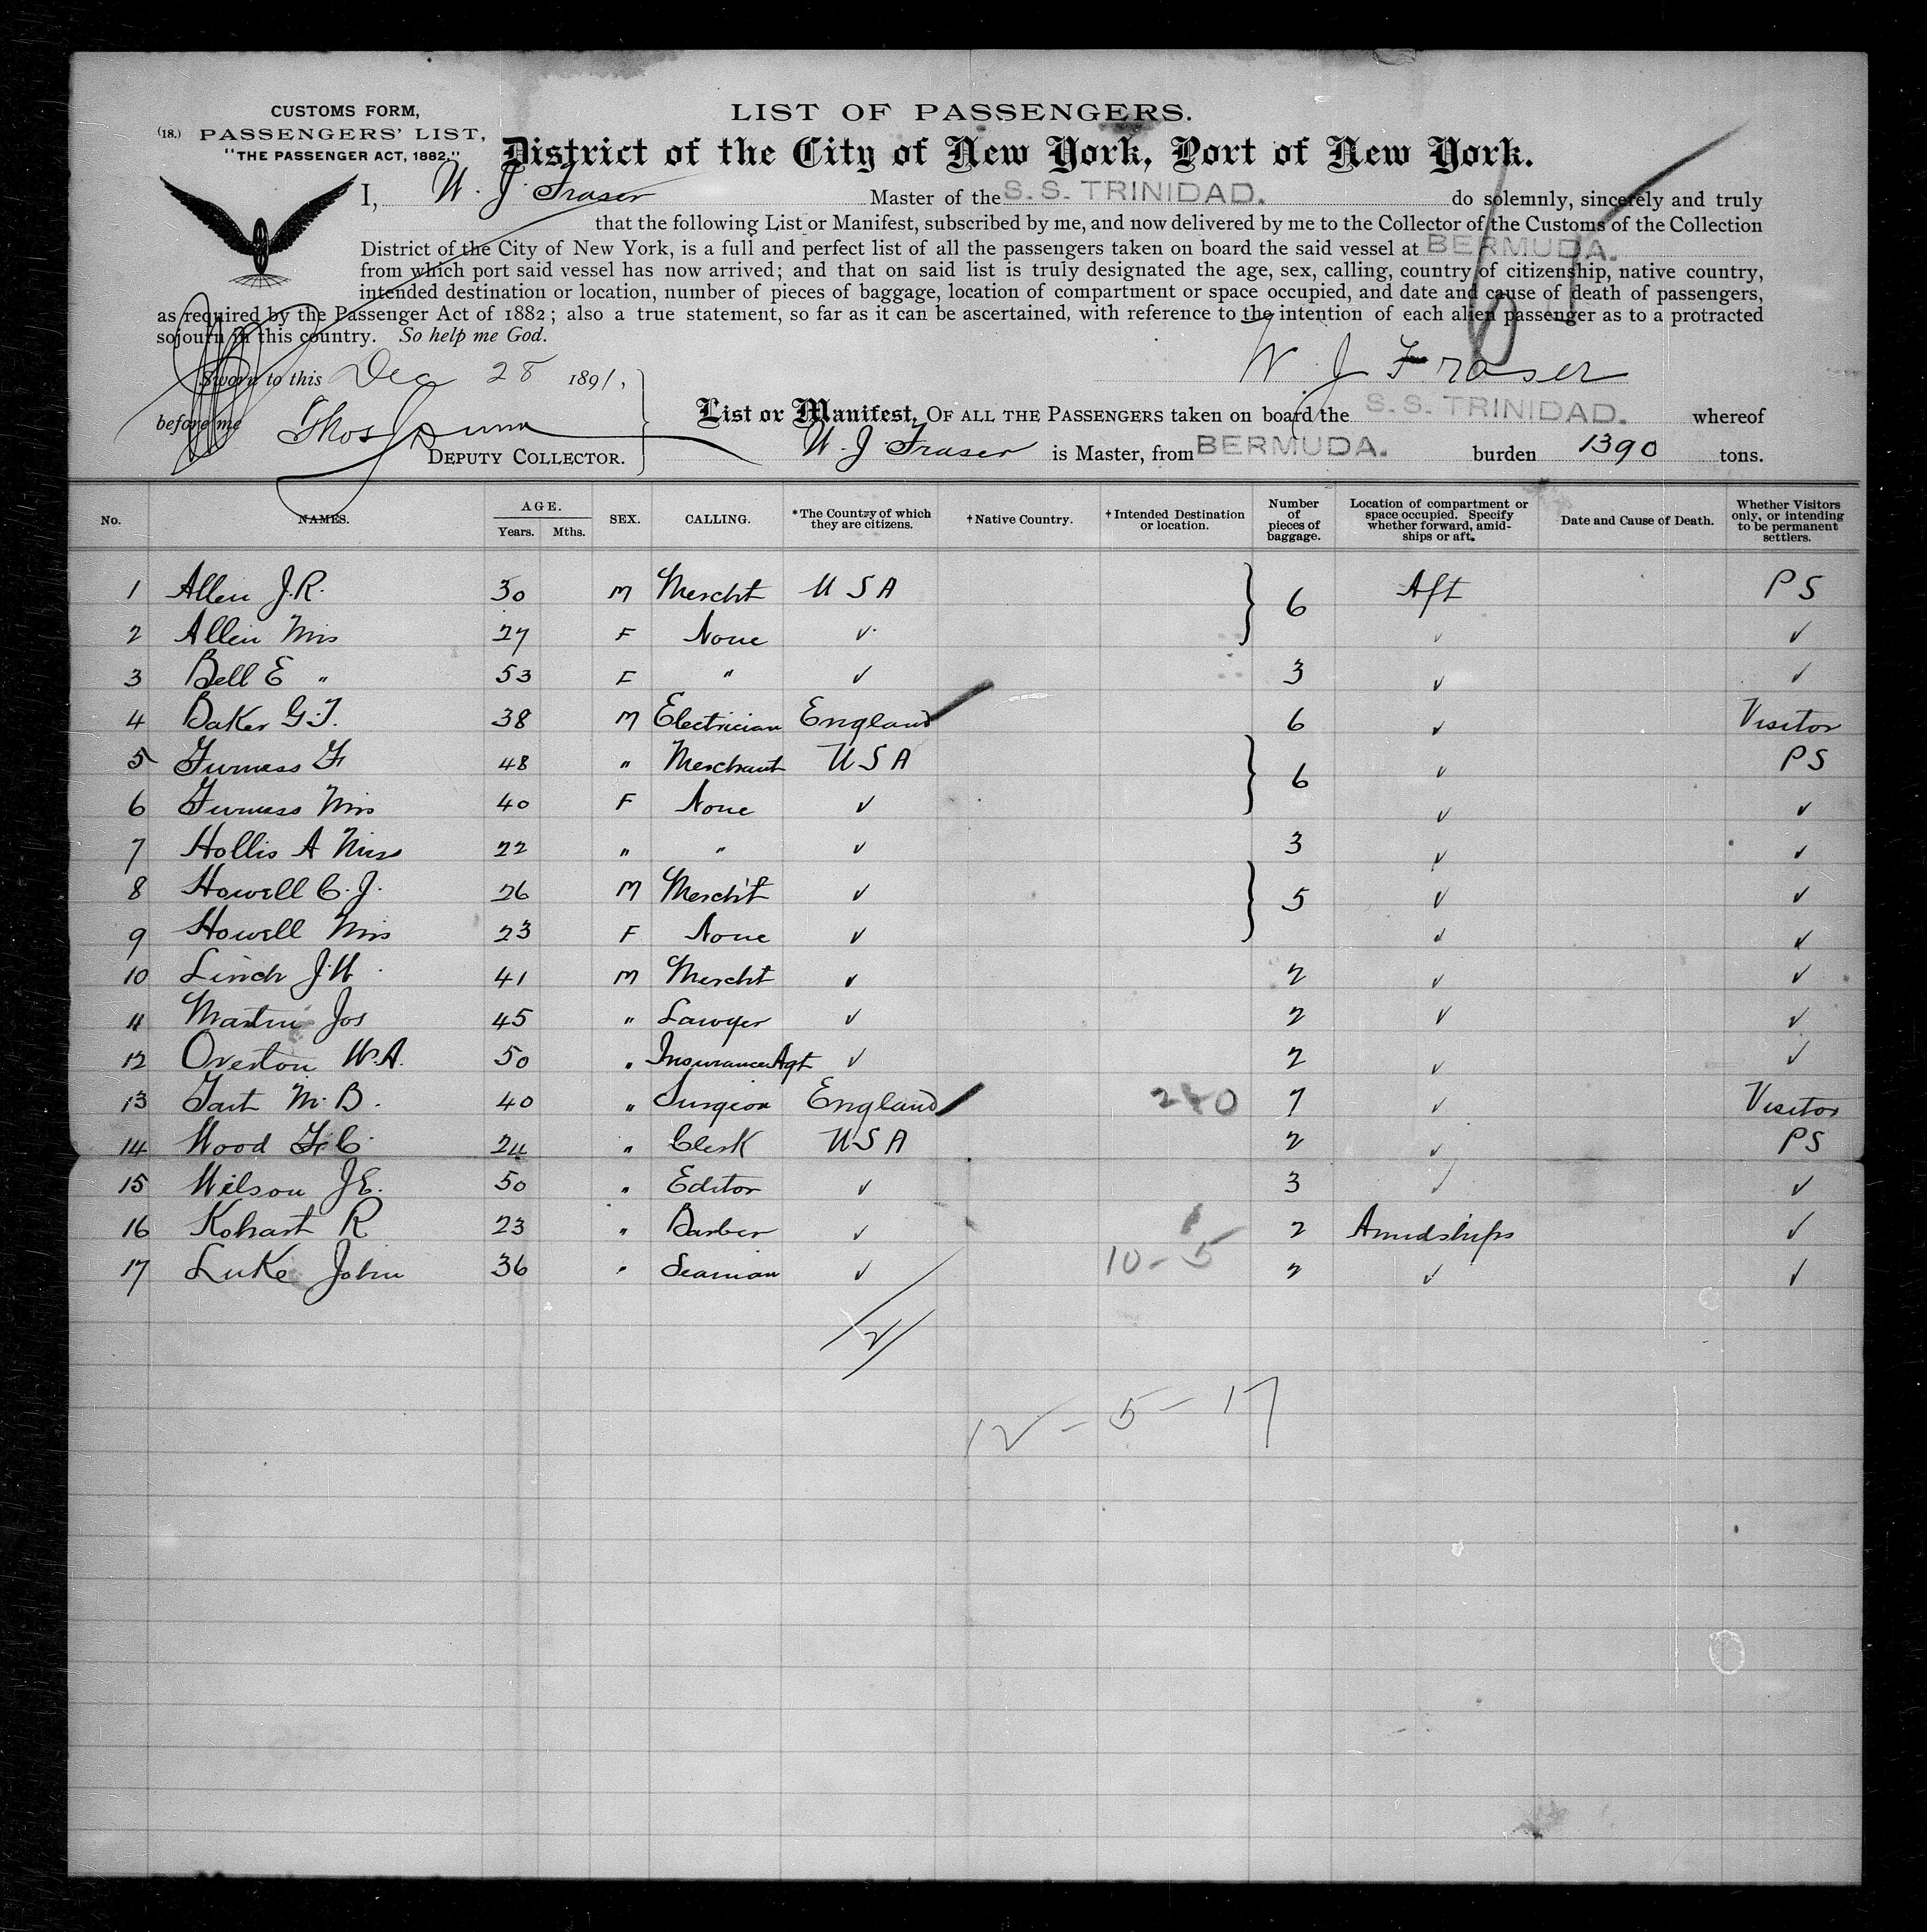 CUSTOMS FORM,
(18.) PASSENGERS' LIST,
"THE PASSENGER ACT, 1882."
LIST OF PASSENGERS.
District of the City of New York, Port of New York.
I, W. J. Fraser Master of the S. S. TRINIDAD. do solemnly, sincerely and truly
that the following List or Manifest, subscribed by me, and now delivered by me to the Collector of the Customs of the Collection
District of the City of New York, is a full and perfect list of all the passengers taken on board the said vessel at BERMUDA.
from which port said vessel has now arrived; and that on said list is truly designated the age, sex, calling, country of citizenship, native country,
intended destination or location, number of pieces of baggage, location of compartment or space occupied, and date and cause of death of passengers,
as required by the Passenger Act of 1882; also a true statement, so far as it can be ascertained, with reference to the intention of each alien passenger as to a protracted
sojourn in this country. So help me God.
W. J. Fraser
Sworn to this Dec 28 1891,
before me Thos Dunn
DEPUTY COLLECTOR.
List or Manifest, OF ALL THE PASSENGERS taken on board the S. S. TRINIDAD. whereof
W. J. Fraser is Master, from BERMUDA. burden 1390 tons.
No. NAMES. AGE. Years. Mths. SEX. CALLING. *The Country of which they are citizens. †Native Country. †Intended Destination or location. Number of pieces of baggage. Location of compartment or space occupied. Specify whether forward, amidships or aft. Date and Cause of Death. Whether Visitors only, or intending to be permanent settlers.
1 Allen J. R. 30 M Mercht U S A } 6 Aft P S
2 Allen Mrs 27 F None ✓ ✓ ✓
3 Bell E " 53 F " ✓ 3 ✓ ✓
4 Baker G. T. 38 M Electrician England 6 ✓ Visitor
5 Furness F 48 " Merchant U S A } 6 ✓ P S
6 Furness Mrs 40 F None ✓ ✓ ✓
7 Hollis A Miss 22 " " ✓ 3 ✓ ✓
8 Howell C. J. 26 M Merch't ✓ } 5 ✓ ✓
9 Howell Mrs 23 F None ✓ ✓ ✓
10 Linch J. W. 41 M Mercht ✓ 2 ✓ ✓
11 Martin Jos 45 " Lawyer ✓ 2 ✓ ✓
12 Overton W. A. 50 " Insurance Agt ✓ 2 ✓ ✓
13 M. B. 40 " Surgeon England 240 7 ✓ Visitor
14 Wood F. C. 24 " Clerk U S A 2 ✓ P S
15 Wilson J E. 50 " Editor ✓ 3 ✓ ✓
16 Kohart R 23 " Barber ✓ 2 Amidships ✓
17 Luke John 36 " Seaman ✓ 10 - 5 2 ✓ ✓
12 - 5 - 17